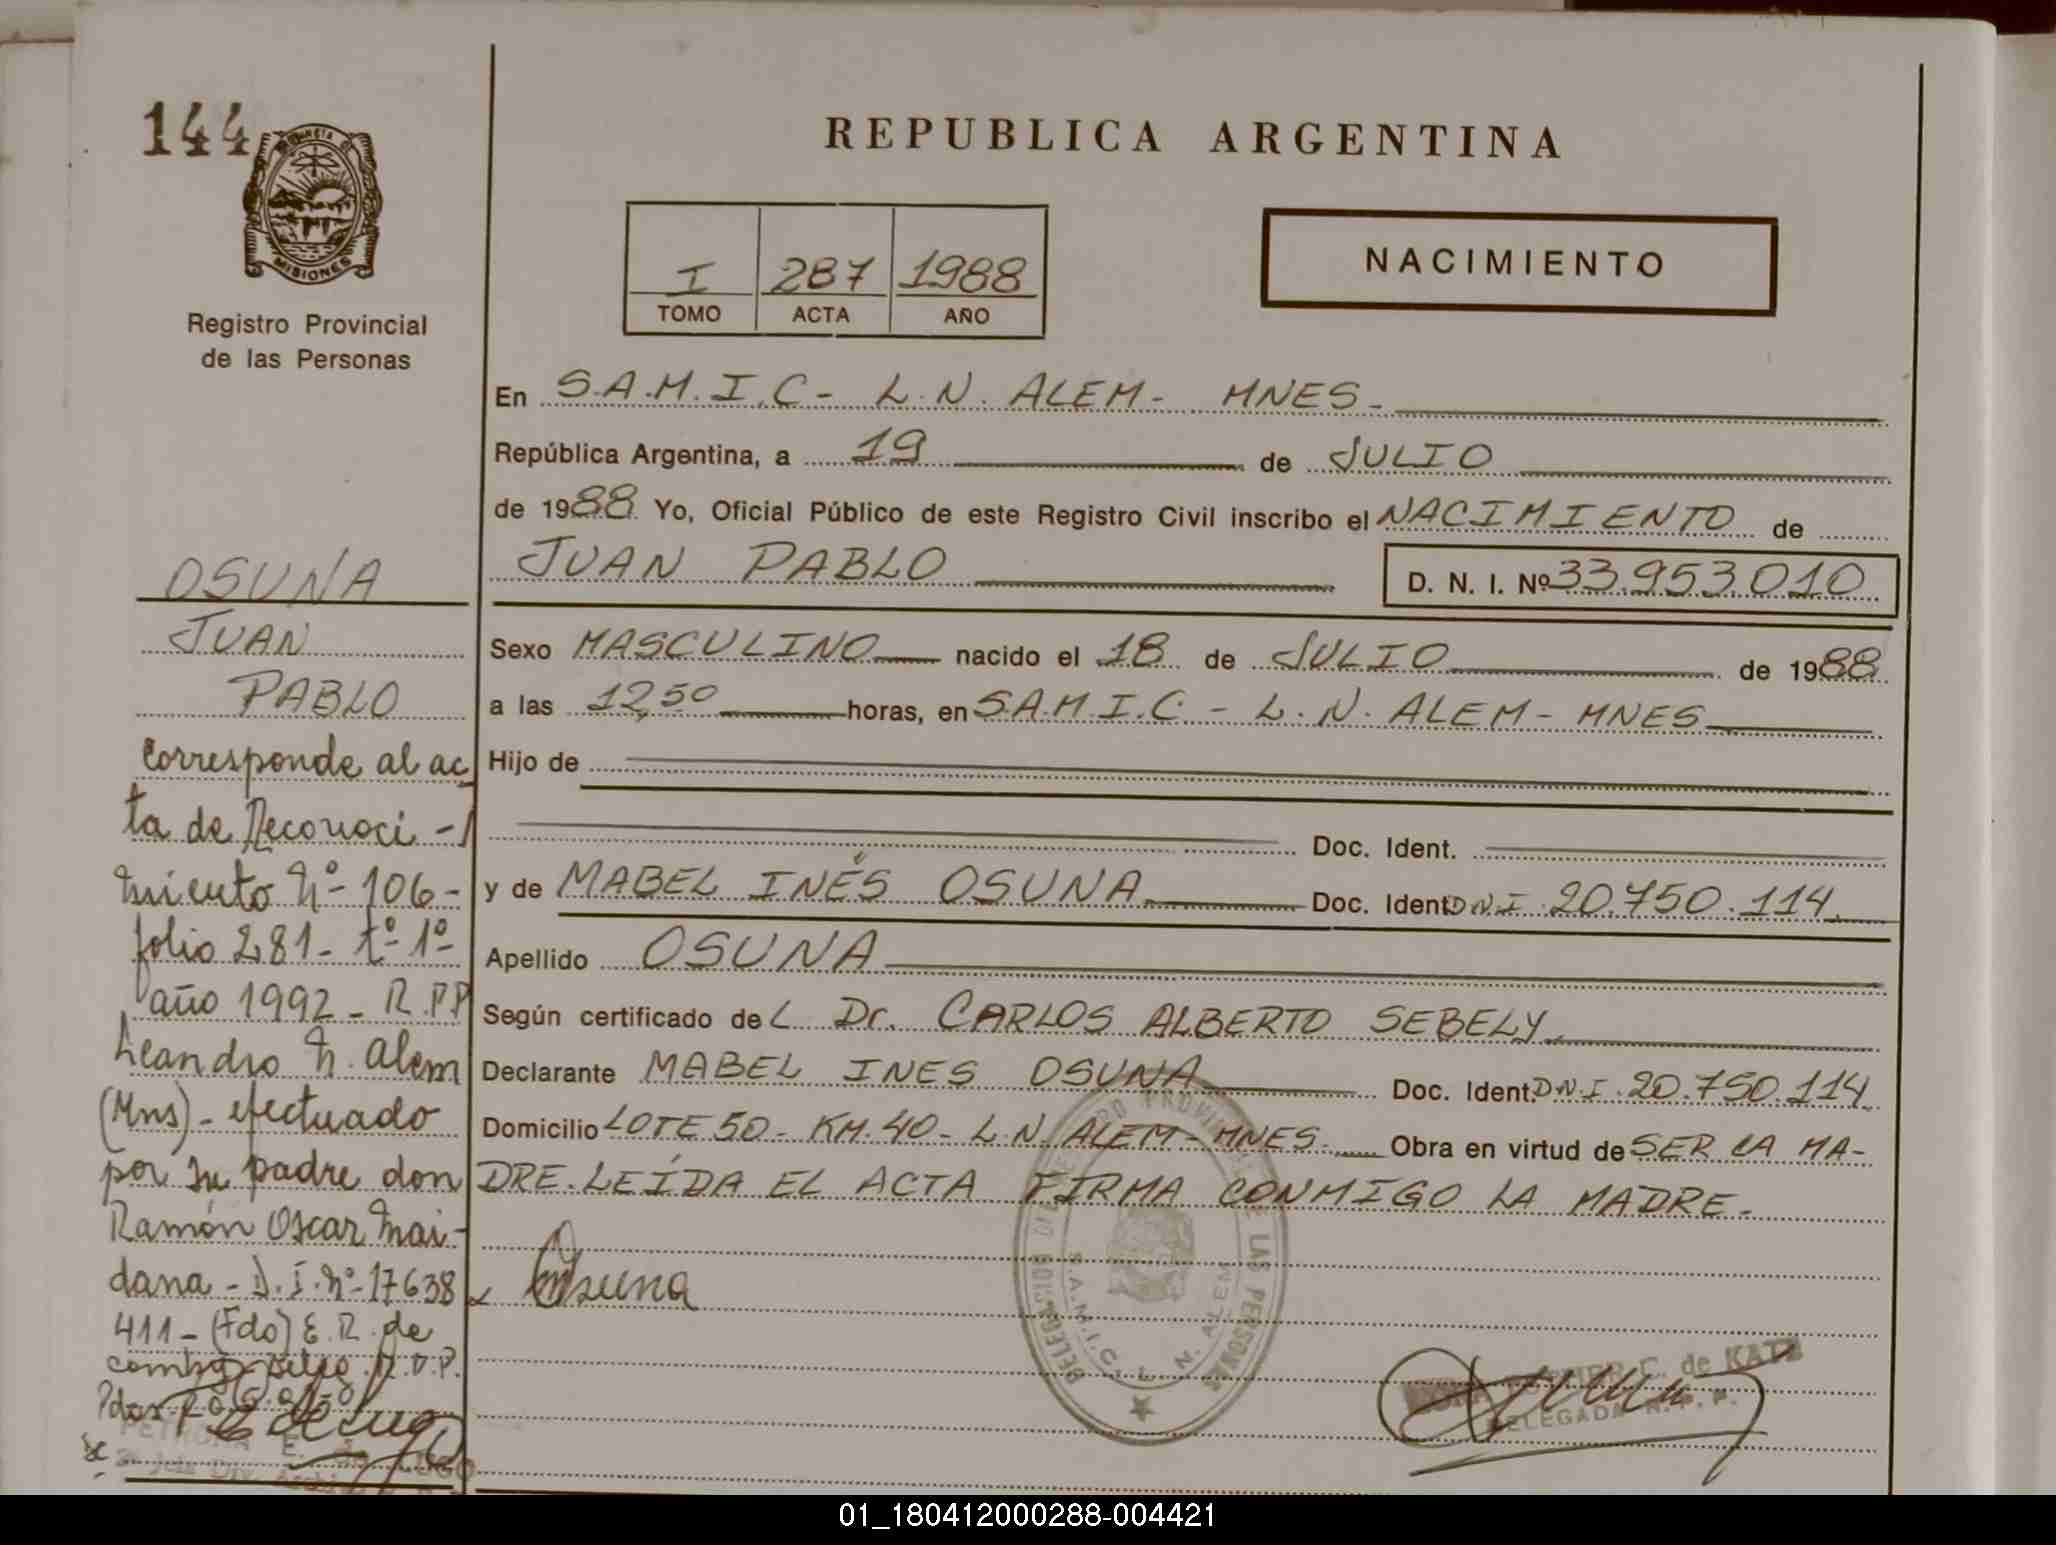 144
PROVINCIA DE
MISIONES
Registro Provincial
de las Personas
REPUBLICA ARGENTINA
I 287 1988
TOMO ACTA AÑO
NACIMIENTO
En S.A.M.I.C - L.N. ALEM - MNES -
República Argentina, a 19 de JULIO
de 1988 Yo, Oficial Público de este Registro Civil inscribo el NACIMIENTO de
JUAN PABLO D. N. I. Nº 33.953.010
Sexo MASCULINO nacido el 18 de JULIO de 1988
a las 12,50 horas, en S.A.M.I.C. - L.N. ALEM - MNES
Hijo de
Doc. Ident.
y de MABEL INÉS OSUNA Doc. Ident. DNI 20.750.114
Apellido OSUNA
Según certificado del Dr. CARLOS ALBERTO SEBELY
Declarante MABEL INES OSUNA Doc. Ident. D.N.I. 20.750.114
Domicilio LOTE 50 - KM. 40 - L.N. ALEM - MNES. Obra en virtud de SER LA MA-
DRE. LEÍDA EL ACTA FIRMA CONMIGO LA MADRE.
Osuna
REGISTRO PROVINCIAL DE LAS PERSONAS
S.A.M.I.C. L. N. ALEM
C. de KATZ
DELEGADA R.P.P.
OSUNA
JUAN
PABLO
Corresponde al ac
ta de Reconoci -
miento Nº 106 -
folio 281 - tº 1º
año 1992 - R.P.P
Leandro N. Alem
(Mns) - efectuado
por su padre don
Ramón Oscar Mai-
dana - D.I. Nº 17638
411 - (Fdo) E.R. de
PETRONA E. de LUGO
01_180412000288-004421